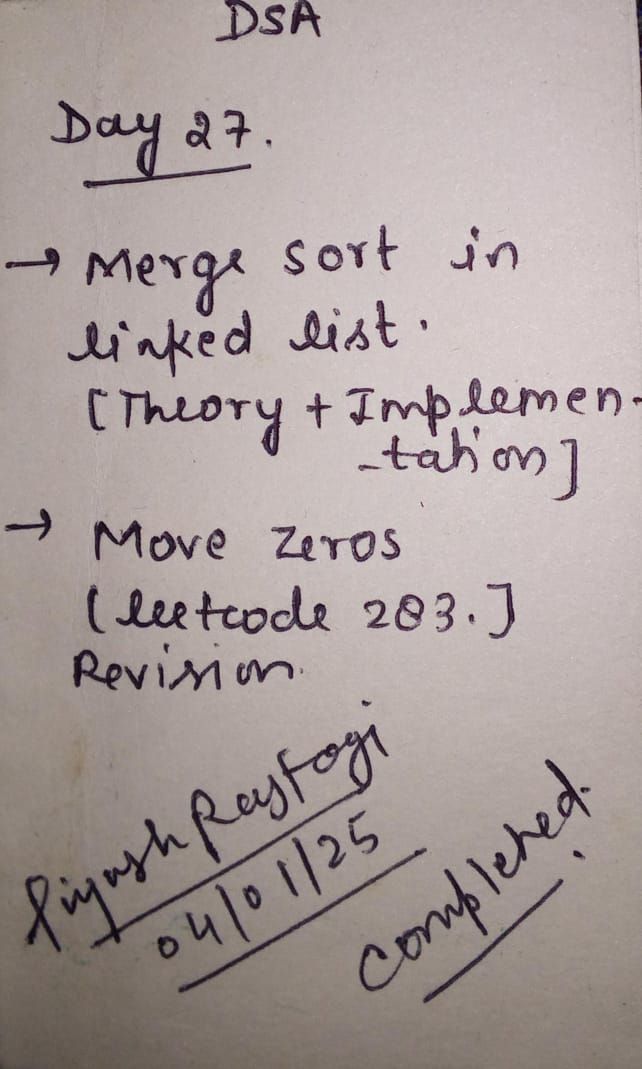 DSA
Day 27.
→ Merge sort in
linked list.
[Theory + Implemen-
-tation]
→ Move Zeros
(leetcode 283.]
Revision.
Piyush Rastogi
04/01/25
Completed.